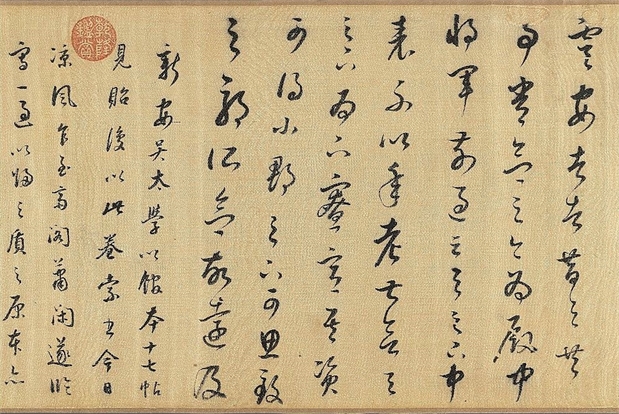 虞安吉者昔與共
事常念之今為殿中
將軍前過云與足下中
表不以年老甚欲與
足下為下寮意其資
可得小郡足下可思致
之耶所念故遠及
新安吳太學以館本十七帖
見貽復以此卷索書今日
涼風乍至齋閣蕭閑遂臨
寫一過以歸之質之原本亦
乾隆鑑賞